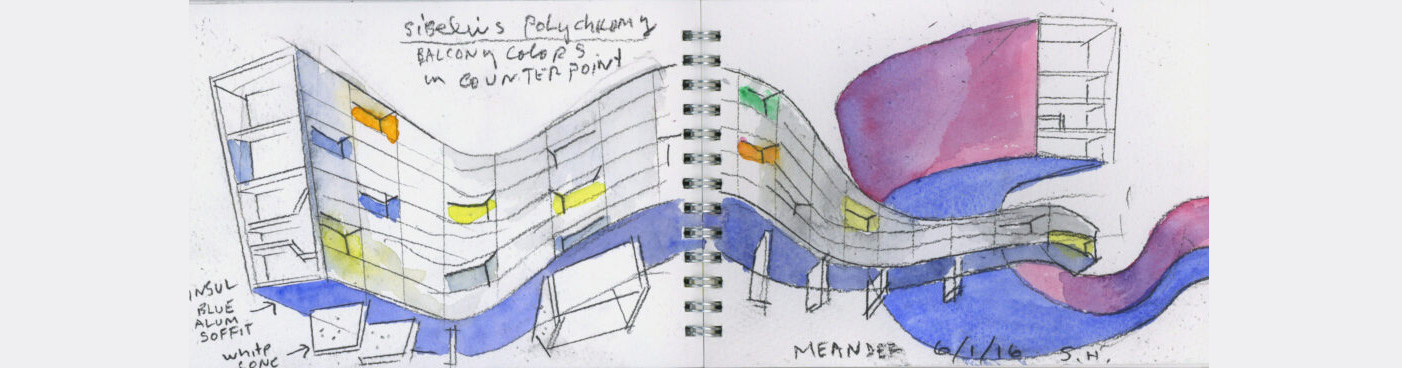 SIBELIUS POLYCHROMY
BALCONY COLORS
IN COUNTERPOINT
INSUL
BLUE
ALUM
SOFFIT
WHITE
CONC
MEANDER 6/1/16 S.H.